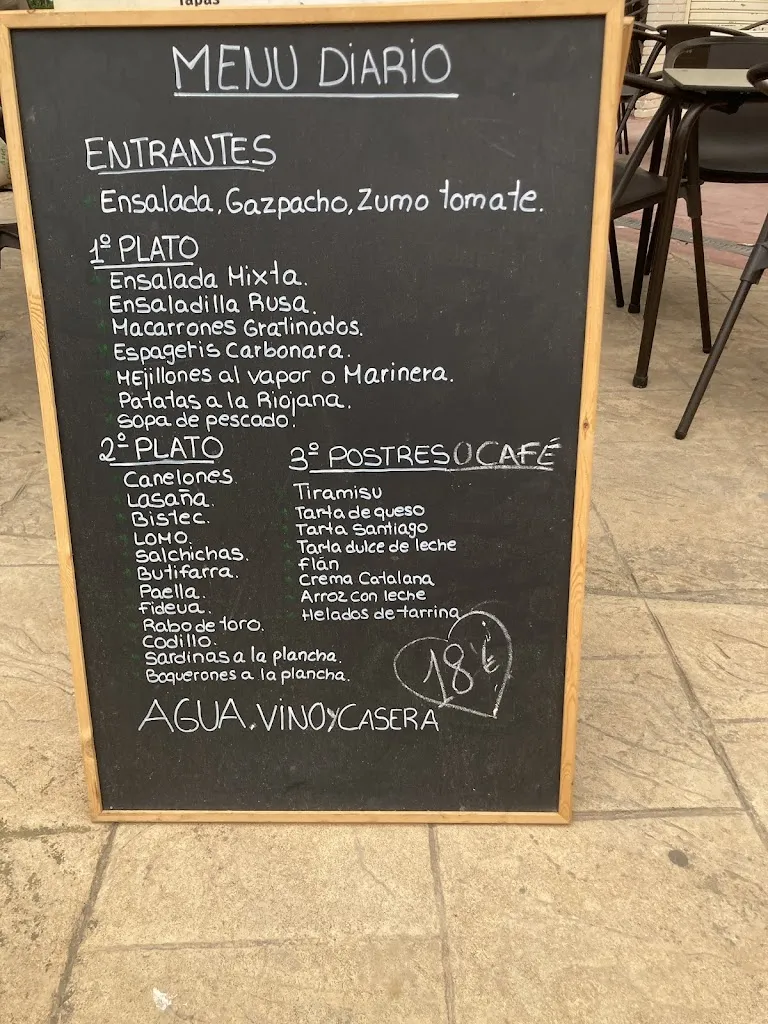 Tapas
MENU DIARIO
ENTRANTES
Ensalada, Gazpacho, Zumo tomate.
1º PLATO
Ensalada Mixta.
Ensaladilla Rusa.
Macarrones Gratinados.
Espagetis Carbonara.
Mejillones al vapor o Marinera.
Patatas a la Riojana.
Sopa de pescado.
2º PLATO
Canelones.
Lasaña.
Bistec.
Lomo.
Salchichas.
Butifarra.
Paella.
Fideua.
Rabo de toro.
Codillo.
Sardinas a la plancha.
Boquerones a la plancha.
3º POSTRES O CAFÉ
Tiramisu
Tarta de queso
Tarta Santiago
Tarta dulce de leche
Flán
Crema Catalana
Arroz con leche
Helados de tarrina
18'€
AGUA, VINO Y CASERA